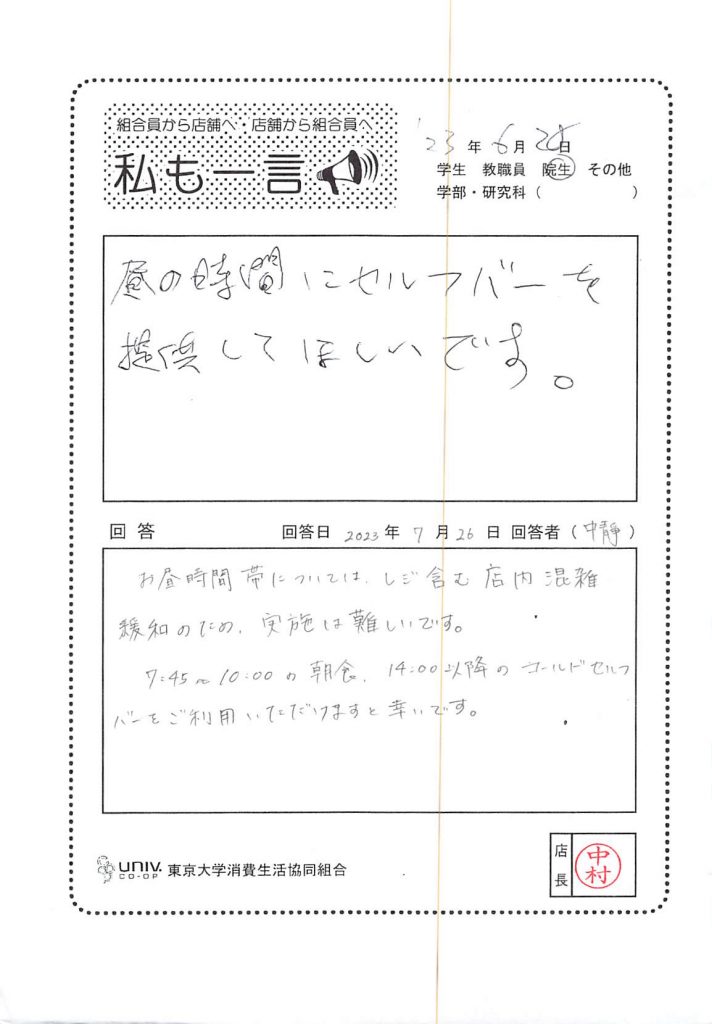 組合員から店舗へ・店舗から組合員へ
私も一言
'23年6月 日
学生 教職員 院生 その他
学部・研究科（ ）
昼の時間にセルフバーを
提供してほしいです。
回答 回答日 2023年 7月26日 回答者（中静）
お昼時間帯については、レジ含む店内混雑
緩和のため、実施は難しいです。
7:45～10:00の朝食、14:00以降のコールドセルフ
バーをご利用いただけますと幸いです。
UNIV. CO-OP 東京大学消費生活協同組合
店長 中村